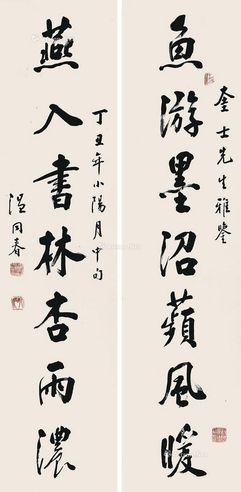 奎士先生雅鑒
魚游墨沼蘋風暖
燕入書林杏雨濃
丁丑年小陽月中旬
溫同春